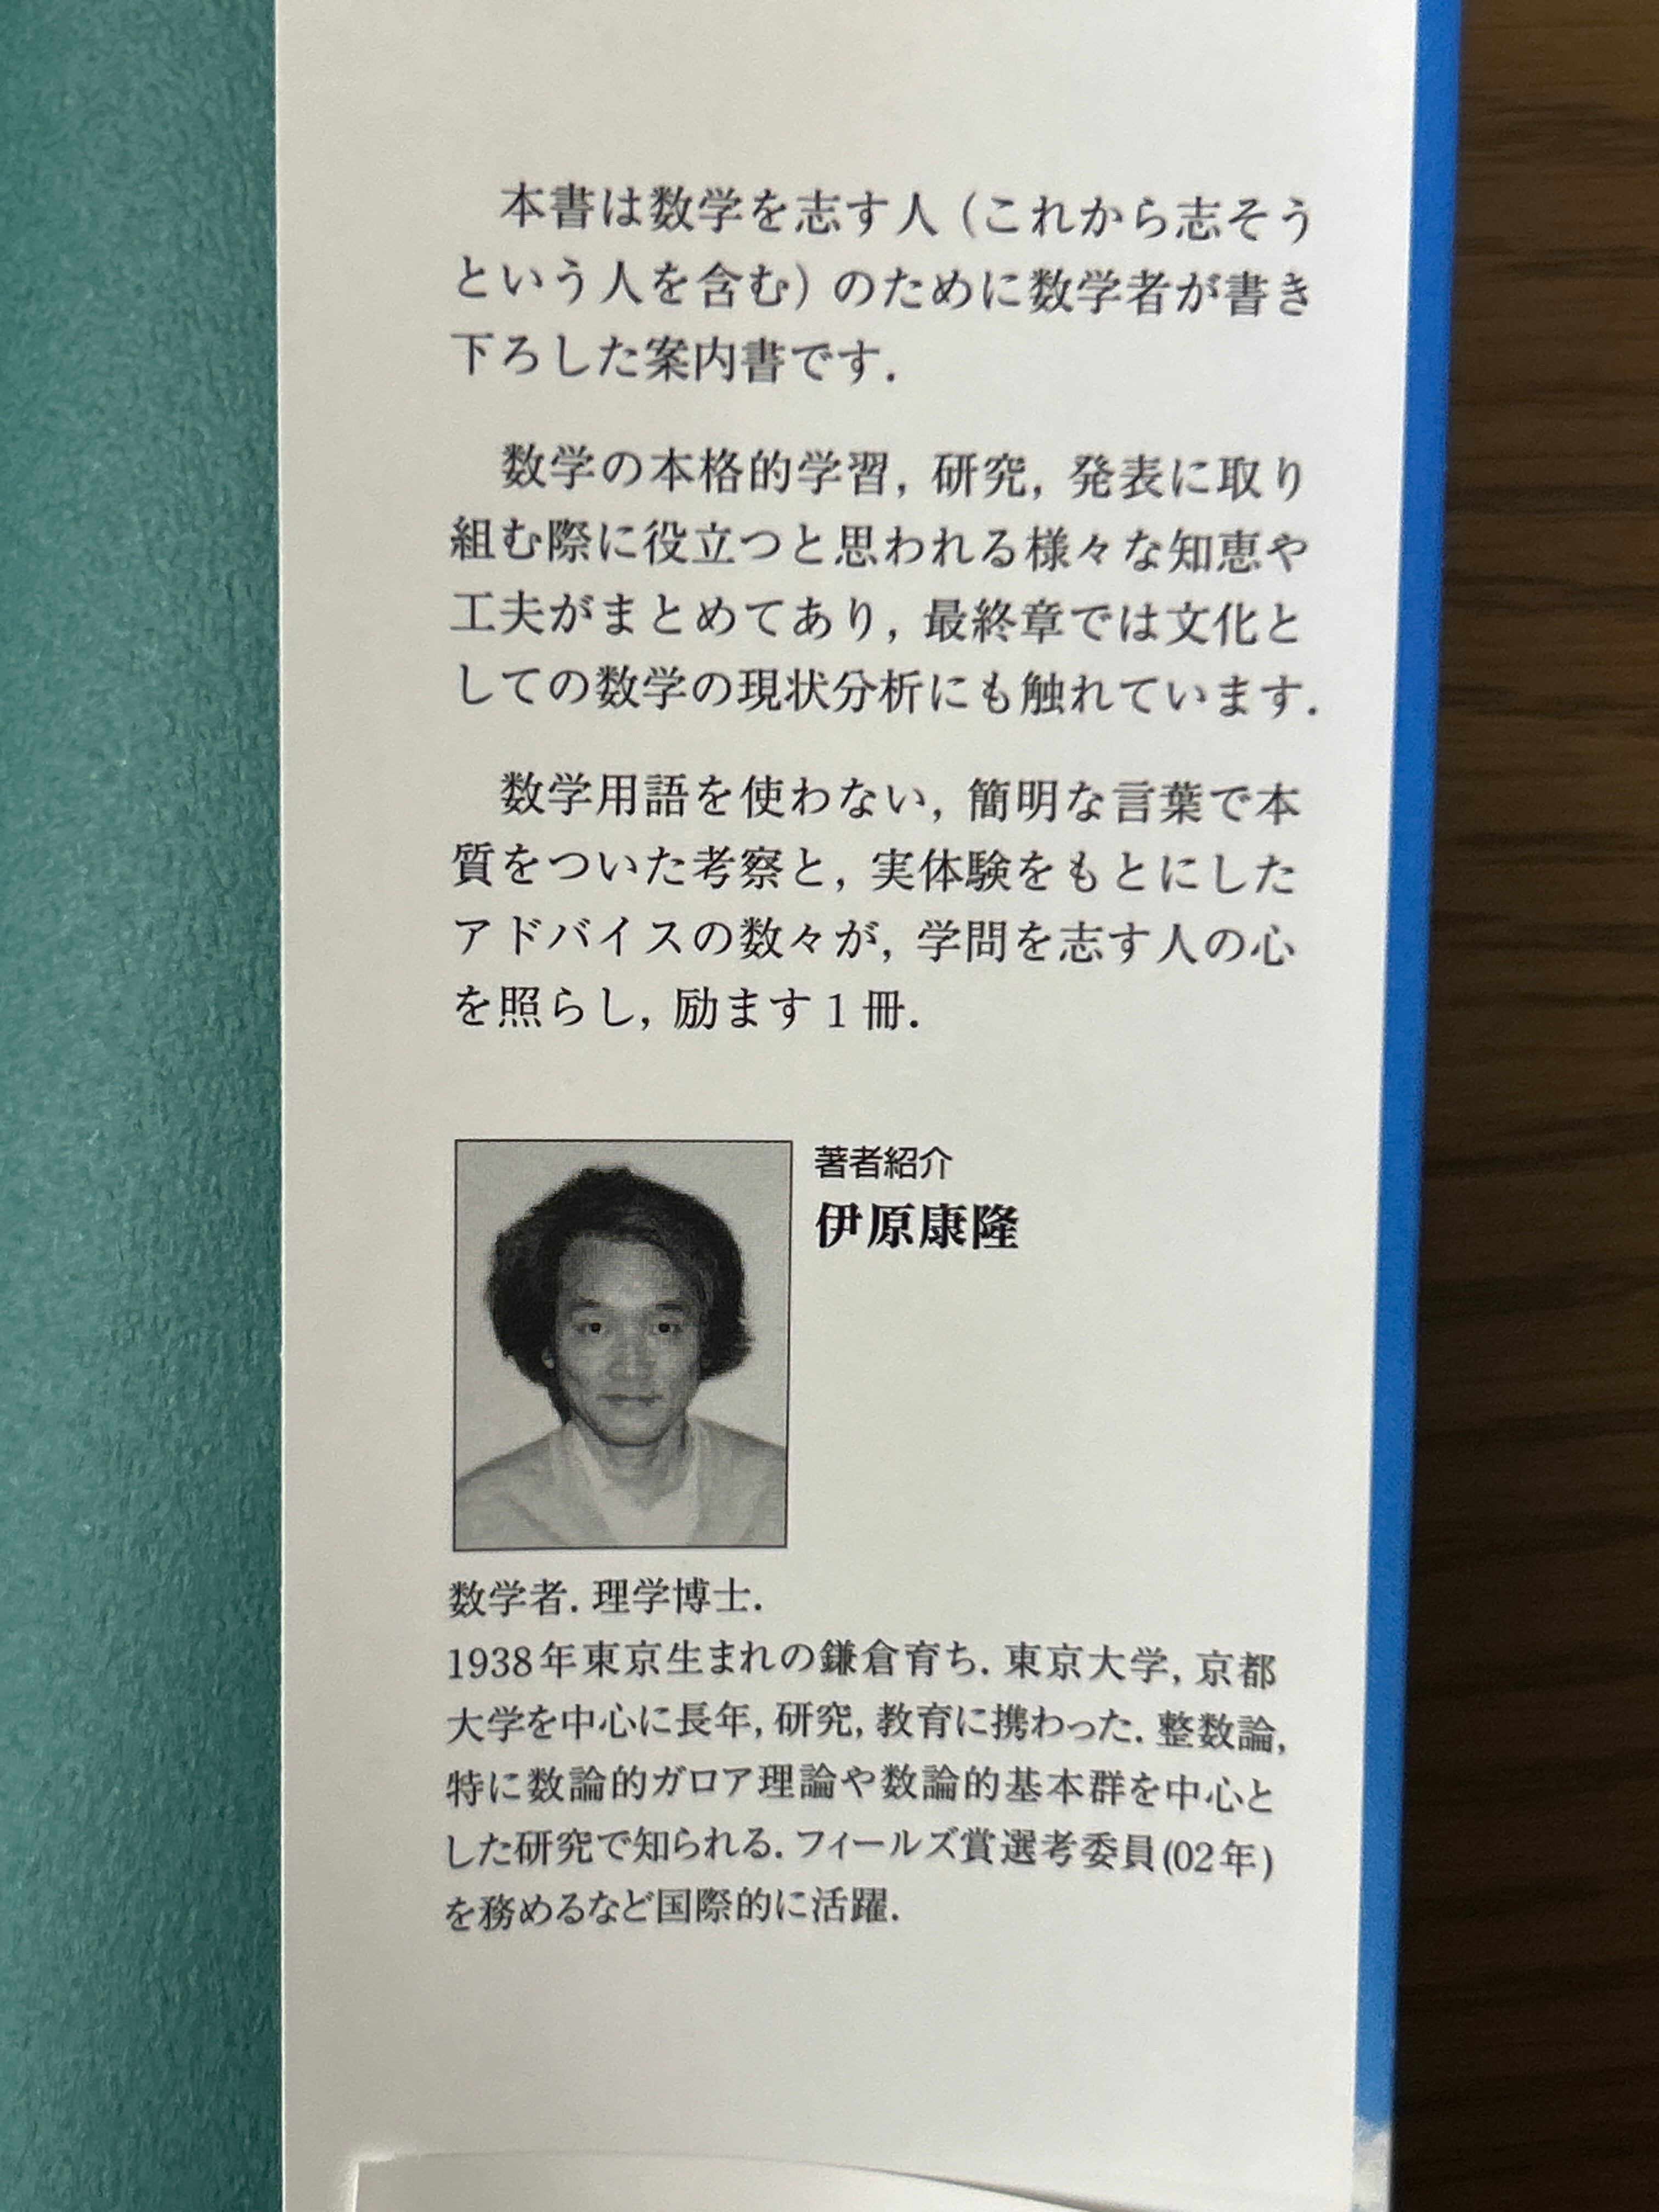 本書は数学を志す人（これから志そう
という人を含む）のために数学者が書き
下ろした案内書です．
数学の本格的学習，研究，発表に取り
組む際に役立つと思われる様々な知恵や
工夫がまとめてあり，最終章では文化と
しての数学の現状分析にも触れています．
数学用語を使わない，簡明な言葉で本
質をついた考察と，実体験をもとにした
アドバイスの数々が，学問を志す人の心
を照らし，励ます1冊．
著者紹介
伊原康隆
数学者．理学博士．
1938年東京生まれの鎌倉育ち．東京大学，京都
大学を中心に長年，研究，教育に携わった．整数論，
特に数論的ガロア理論や数論的基本群を中心と
した研究で知られる．フィールズ賞選考委員(02年)
を務めるなど国際的に活躍．